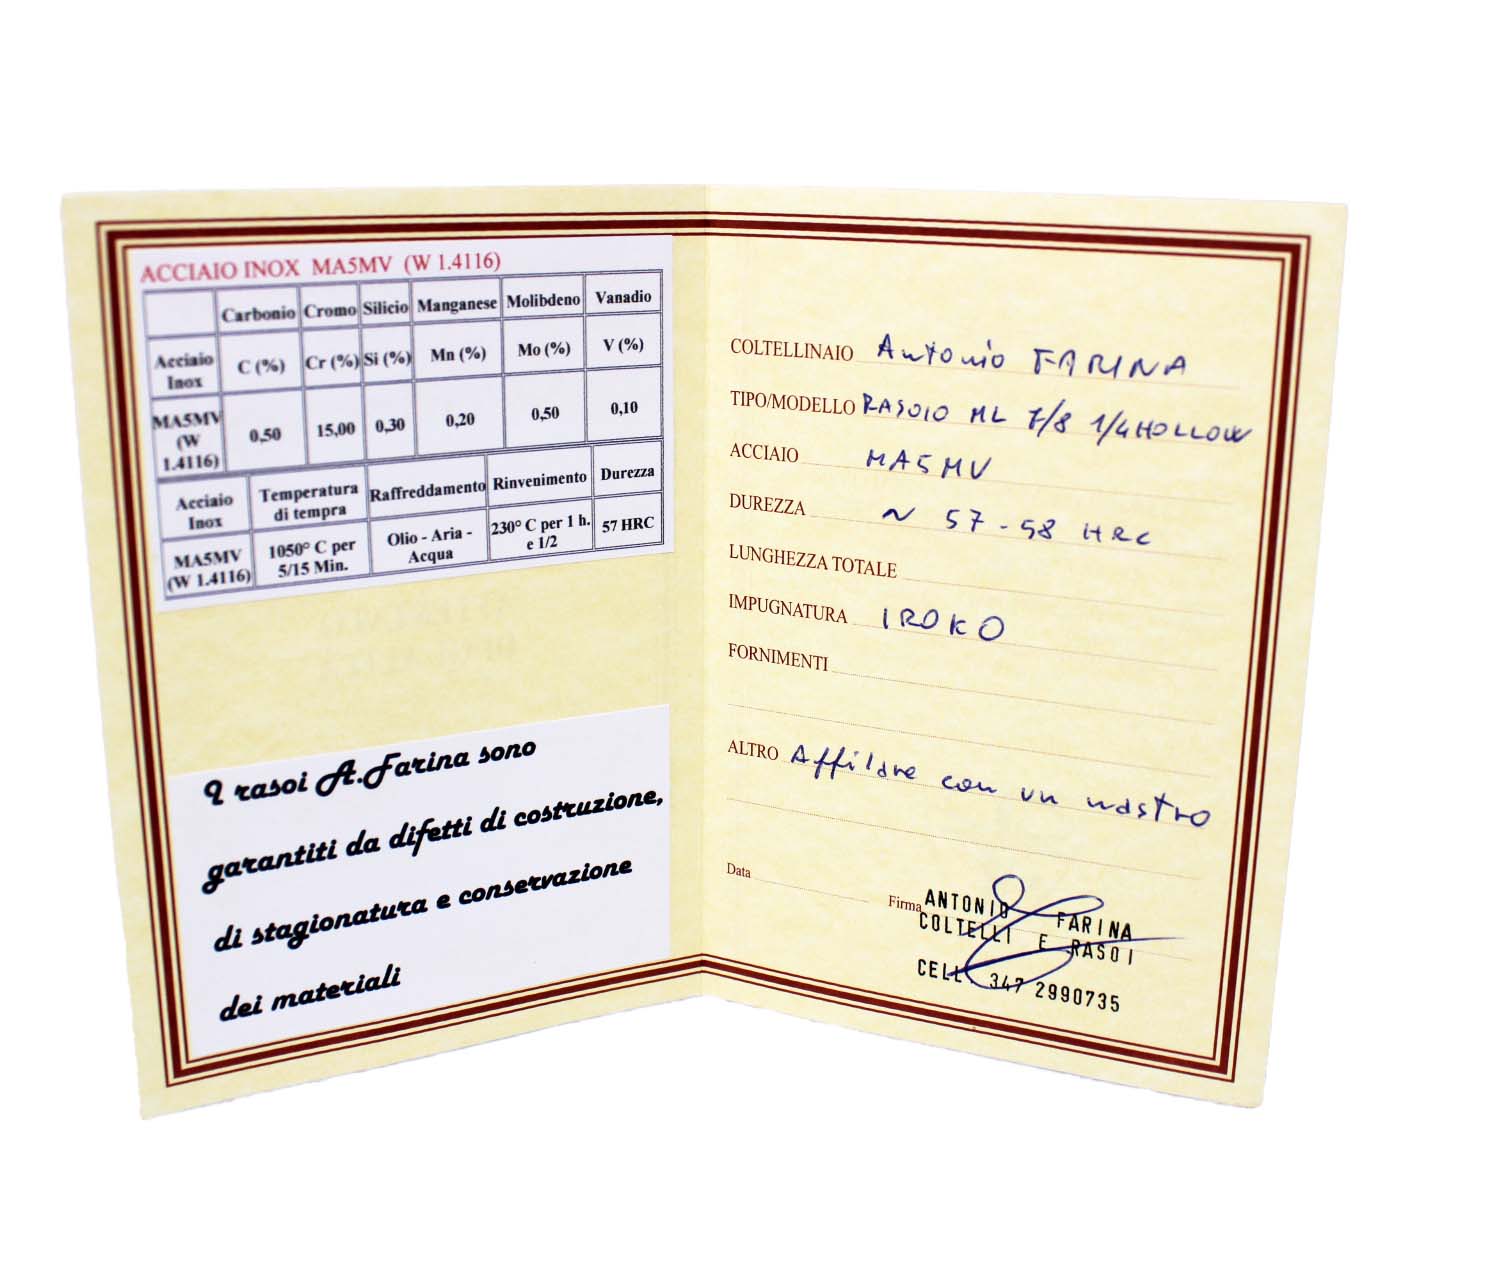 ACCIAIO INOX MA5MV (W 1.4116)
Carbonio Cromo Silicio Manganese Molibdeno Vanadio
Acciaio Inox C (%) Cr (%) Si (%) Mn (%) Mo (%) V (%)
MA5MV (W 1.4116) 0,50 15,00 0,30 0,20 0,50 0,10
Acciaio Inox Temperatura di tempra Raffreddamento Rinvenimento Durezza
MA5MV (W 1.4116) 1050° C per 5/15 Min. Olio - Aria - Acqua 230° C per 1 h. e 1/2 57 HRC
I rasoi A.Farina sono
garantiti da difetti di costruzione,
di stagionatura e conservazione
dei materiali
COLTELLINAIO Antonio FARINA
TIPO/MODELLO RASOIO ML 7/8 1/4 HOLLOW
ACCIAIO MA5MV
DUREZZA ~ 57-58 HRC
LUNGHEZZA TOTALE
IMPUGNATURA IROKO
FORNIMENTI
ALTRO Affilare con un nastro
Data
Firma ANTONIO FARINA
COLTELLI E RASOI
CELL. 347 2990735